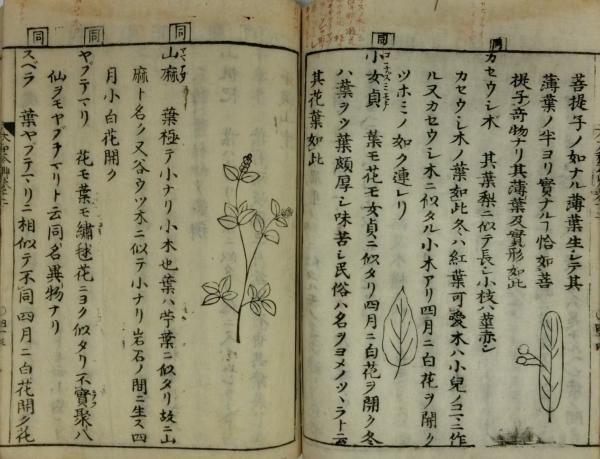 菩提子ノ如ナル薄葉生シテ其
薄葉ノ半ヨリ實ナルヿ恰如菩
提子奇物ナリ其薄葉及實形如此
同
カセウシ木 其葉梨ニ似テ長シ小枝ハ莖赤シ
カセウシ木ノ葉如此冬ハ紅葉可愛木ハ小兒ノコマニ作
ル又カセウシ木ニ似タル小木アリ四月ニ白花ヲ開ク
ツホミノ如ク連レリ
同
小女貞 葉モ花モ女貞ニ似タリ四月ニ白花ヲ開ク冬
ハ葉ヲツ葉頗厚シ味苦シ民俗ハ名ヲヨメノツヽラト云
其花葉如此
同
山麻 葉極テ小ナリ小木也葉ハ苧葉ニ似タリ故ニ山
麻ト名ク又谷ウツ木ニ似テ小ナリ岩石ノ間ニ生ス四
月小白花開ク
同
ヤブテマリ 花モ葉モ繡毬花ニヨク似タリ不實聚八
仙ヲモヤブテマリト云同名異物ナリ
同
スベラ 葉ヤブテマリニ相似テ不同四月ニ白花開ク花